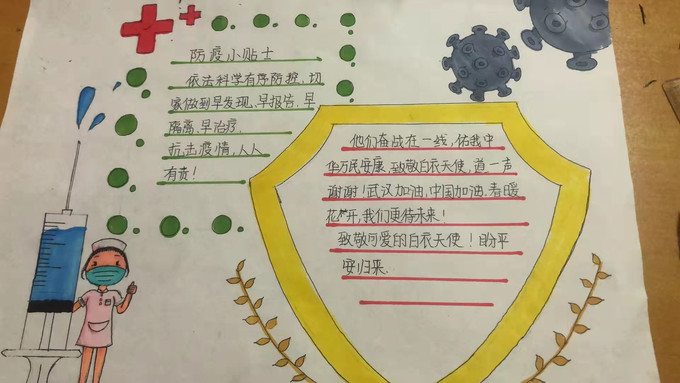 防疫小贴士
依法科学有序防控,切
家做到早发现、早报告、早
隔离、早治疗.
抗击疫情,人人
有责!
他们奋战在一线,佑我中
华万民安康,致敬白衣天使,道一声
谢谢!武汉加油,中国加油.春暖
花开,我们更待未来!
致敬可爱的白衣天使!盼平
安归来.